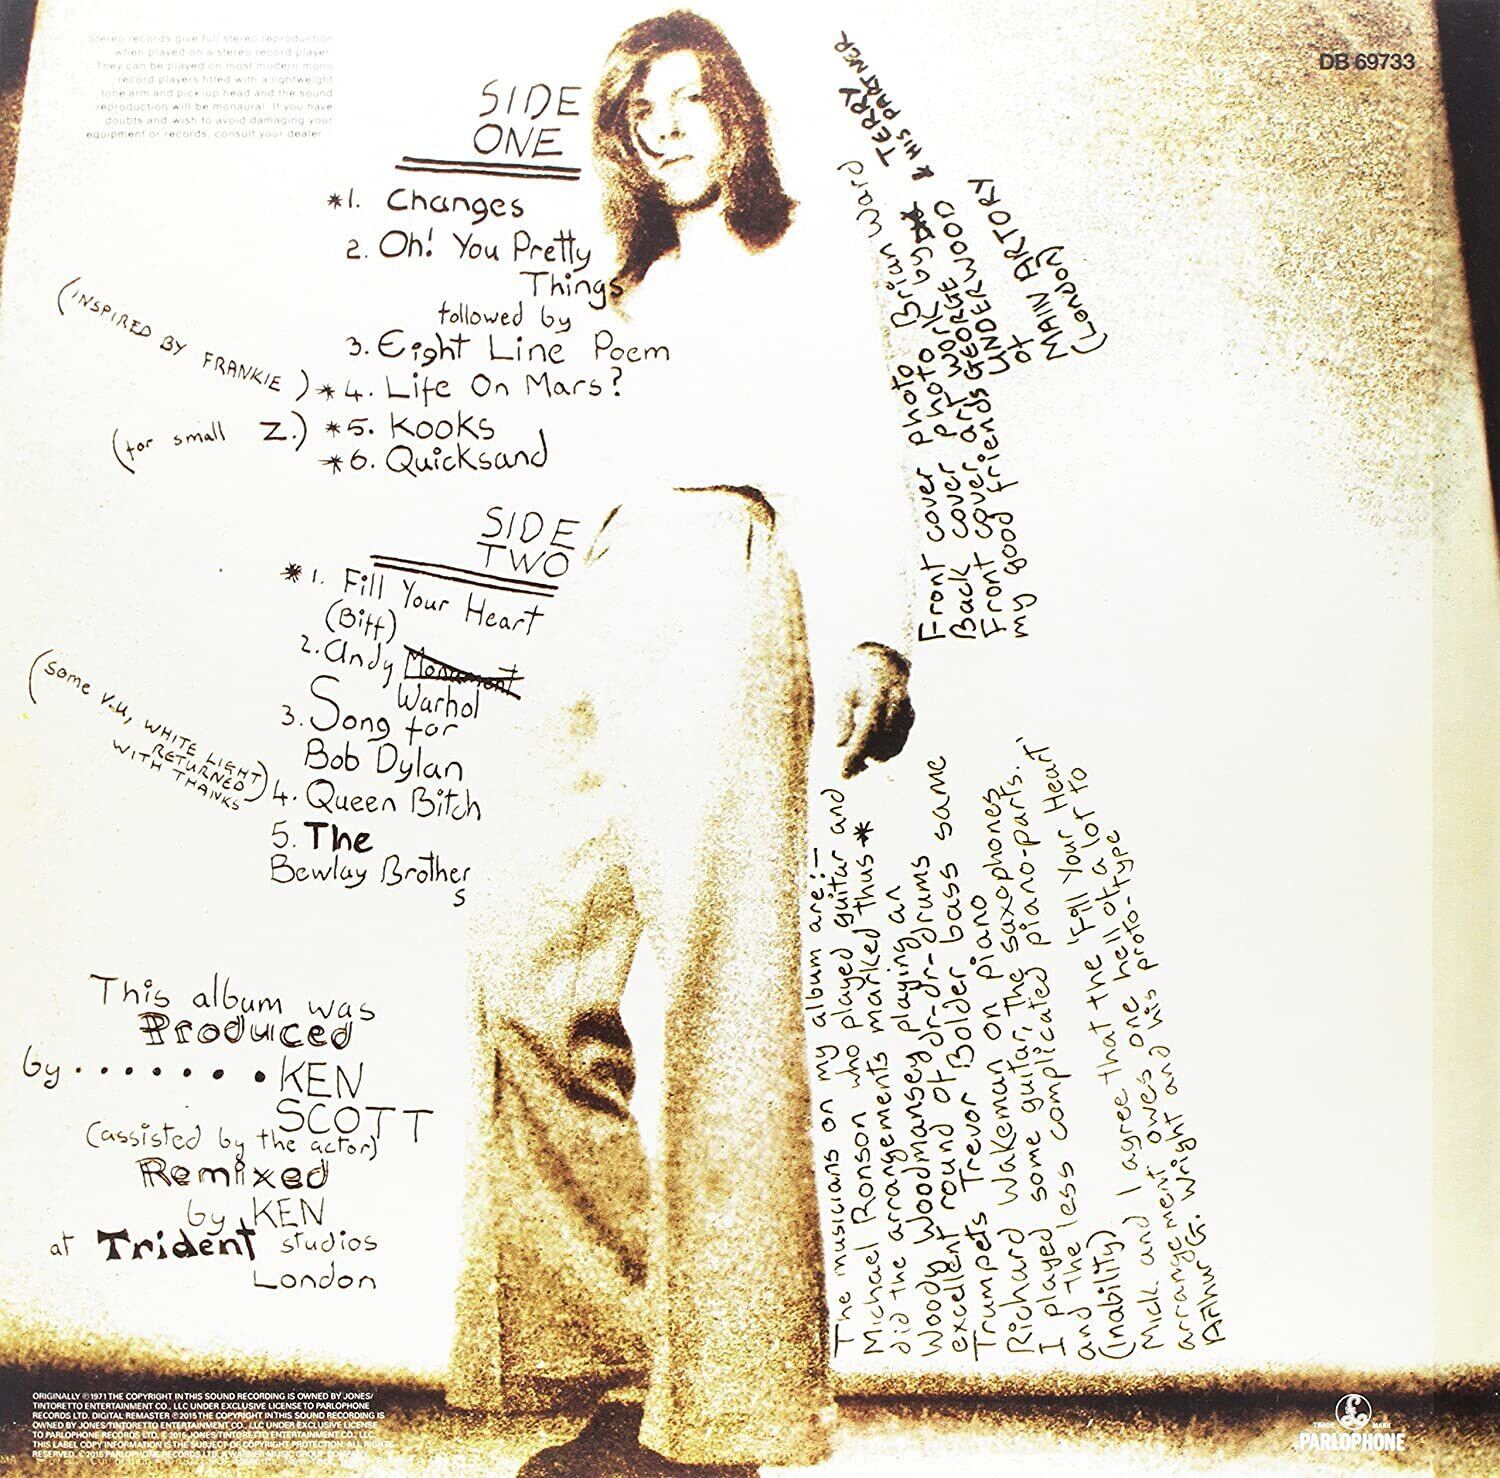 Stereo records give full stereo reproduction
when played on a stereo record player.
They can be played on most modern mono
record players fitted with a lightweight
tone arm and pick-up head and the sound
reproduction will be monaural. If you have
doubts and wish to avoid damaging your
equipment or records, consult your dealer.
DB 69733
SIDE
ONE
*1. Changes
2. Oh! You Pretty
Things
followed by
3. Eight Line Poem
(INSPIRED BY FRANKIE) *4. Life On Mars?
(for small Z.) *5. Kooks
*6. Quicksand
SIDE
TWO
*1. Fill Your Heart
(Biff)
2. Andy Monument
Warhol
3. Song for
Bob Dylan
(some V.U, WHITE LIGHT
RETURNED
WITH THANKS)
4. Queen Bitch
5. The
Bewlay Brother
s
This album was
Produced
by........KEN
SCOTT
(assisted by the actor)
Remixed
by KEN
at Trident studios
London
Front cover photo Brian Ward
Back cover photo by
Front cover art work TERRY
& HIS PARTNER
my good friends GEORGE UNDERWOOD
of
MAIN ARTORY
(London)
The musicians on my album are:-
Michael Ronson who played guitar and
did the arrangements marked thus *
Woody Woodmansey playing an
excellent round of dr-dr-drums
Trumpets Trevor Bolder bass same
Richard Wakeman on piano
I played some guitar, the saxophones
and the less complicated piano-parts.
(inability)
Mick and I agree that the 'Fill Your Heart'
arrangement owes one hell of a lot to
Arthur G. Wright and his proto-type
ORIGINALLY ℗ 1971 THE COPYRIGHT IN THIS SOUND RECORDING IS OWNED BY JONES/
TINTORETTO ENTERTAINMENT CO., LLC UNDER EXCLUSIVE LICENSE TO PARLOPHONE
RECORDS LTD. DIGITAL REMASTER ℗ 2015 THE COPYRIGHT IN THIS SOUND RECORDING IS
OWNED BY JONES/TINTORETTO ENTERTAINMENT CO., LLC UNDER EXCLUSIVE LICENSE
TO PARLOPHONE RECORDS LTD. © 2015 JONES/TINTORETTO ENTERTAINMENT CO., LLC.
THIS LABEL COPY INFORMATION IS THE SUBJECT OF COPYRIGHT PROTECTION. ALL RIGHTS
RESERVED. © 2015 PARLOPHONE RECORDS LTD, A WARNER MUSIC GROUP COMPANY
TRADE MARK
PARLOPHONE